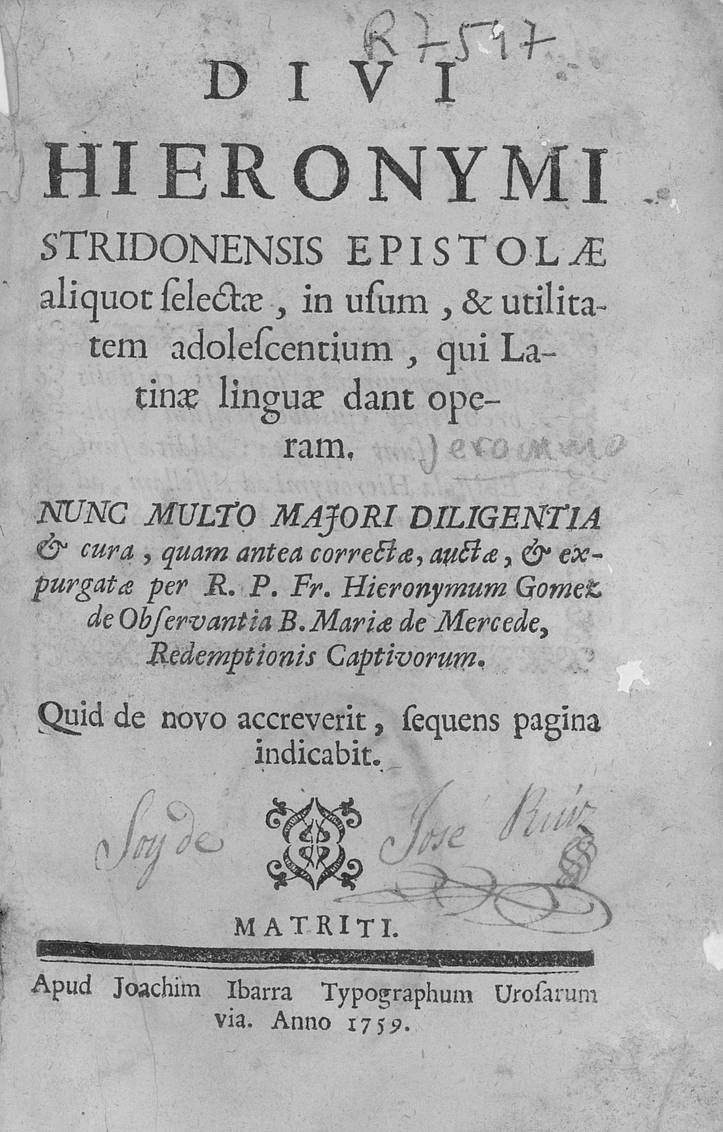 R 7517
DIVI
HIERONYMI
STRIDONENSIS EPISTOLÆ
aliquot ſelectæ, in uſum, & utilita-
tem adoleſcentium, qui La-
tinæ linguæ dant ope-
ram.
Jeronimo
NUNC MULTO MAJORI DILIGENTIA
& cura, quam antea correctæ, auctæ, & ex-
purgatæ per R. P. Fr. Hieronymum Gomez
de Obſervantia B. Mariæ de Mercede,
Redemptionis Captivorum.
Quid de novo accreverit, ſequens pagina
indicabit.
Soy de Josè Ruiz
MATRITI.
Apud Joachim Ibarra Typographum Uroſarum
via. Anno 1759.